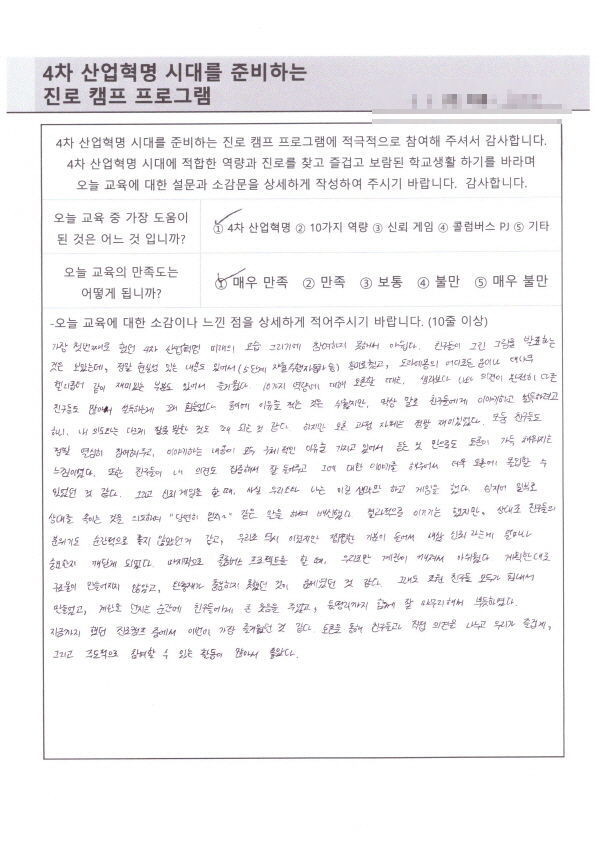 4차 산업혁명 시대를 준비하는
진로 캠프 프로그램
4차 산업혁명 시대를 준비하는 진로 캠프 프로그램에 적극적으로 참여해 주셔서 감사합니다.
4차 산업혁명 시대에 적합한 역량과 진로를 찾고 즐겁고 보람된 학교생활 하기를 바라며
오늘 교육에 대한 설문과 소감문을 상세하게 작성하여 주시기 바랍니다. 감사합니다.
오늘 교육 중 가장 도움이
된 것은 어느 것 입니까?
① 4차 산업혁명 ② 10가지 역량 ③ 신뢰 게임 ④ 콜럼버스 PJ ⑤ 기타
오늘 교육의 만족도는
어떻게 됩니까?
① 매우 만족 ② 만족 ③ 보통 ④ 불만 ⑤ 매우 불만
-오늘 교육에 대한 소감이나 느낀 점을 상세하게 적어주시기 바랍니다. (10줄 이상)
가장 첫번째로 했던 4차 산업혁명 미래의 모습 그리기에 참여하지 못해서 아쉽다. 친구들이 그린 그림을 발표하는
것을 보았는데, 정말 현실성 있는 내용도 있어서 (5단계 자율주행자동차 등) 흥미로웠고, 도라에몽의 어디로든 문이나 대나무
헬리콥터 같이 재미있는 부분도 있어서 즐거웠다. 10가지 역량에 대해 토론할 때는, 생각보다 나와 의견이 완전히 다른
친구들도 많아서 설득하는게 꽤 힘들었다. 종이에 이유를 적는 것은 수월했지만, 막상 말로 친구들에게 이야기하고 설득하려고
하니, 내 의도와는 다르게 잘못 말한 것도 꽤 되는 것 같다. 하지만 토론 과정 자체는 정말 재미있었다. 모둠 친구들도
정말 열심히 참여해주고, 이야기하는 내용이 모두 구체적인 이유를 가지고 있어서 듣는 것 만으로도 토론이 가득 채워지는
느낌이었다. 또한 친구들이 내 의견도 집중해서 잘 들어주고 그에 대한 이야기를 해주어서 더욱 토론에 몰입할 수
있었던 것 같다. 그리고 신뢰게임을 할 때, 사실 우리조와 나는 이길 생각만 하고 게임을 했다. 심지어 일부러
상대를 속이는 것을 의도하여 "당연히 믿지~" 같은 말을 하며 배신했다. 결과적으로 이기기는 했지만, 상대조 친구들의
분위기도 순간적으로 좋지 않았던거 같고, 우리조 역시 이겼지만 찜찜한 기분이 들어서 새삼 신뢰 라는게 얼마나
중요한지 깨닫게 되었다. 마지막으로 콜럼버스 프로젝트를 할 때, 우리조만 계란이 깨져서 아쉬웠다. 계획한대로
구조물이 만들어지지 않았고, 안전재가 충분하지 못했던 것이 문제였던 것 같다. 그래도 조원 친구들 모두가 힘내서
만들었고, 계란을 던지는 순간에 친구들에게 큰 웃음을 주었고, 뒷정리까지 함께 잘 마무리해서 뿌듯하였다.
지금까지 했던 진로캠프 중에서 이번이 가장 즐거웠던 것 같다. 토론을 통해 친구들과 직접 의견을 나누고 우리가 즐겁게,
그리고 주도적으로 참여할 수 있는 활동이 많아서 좋았다.